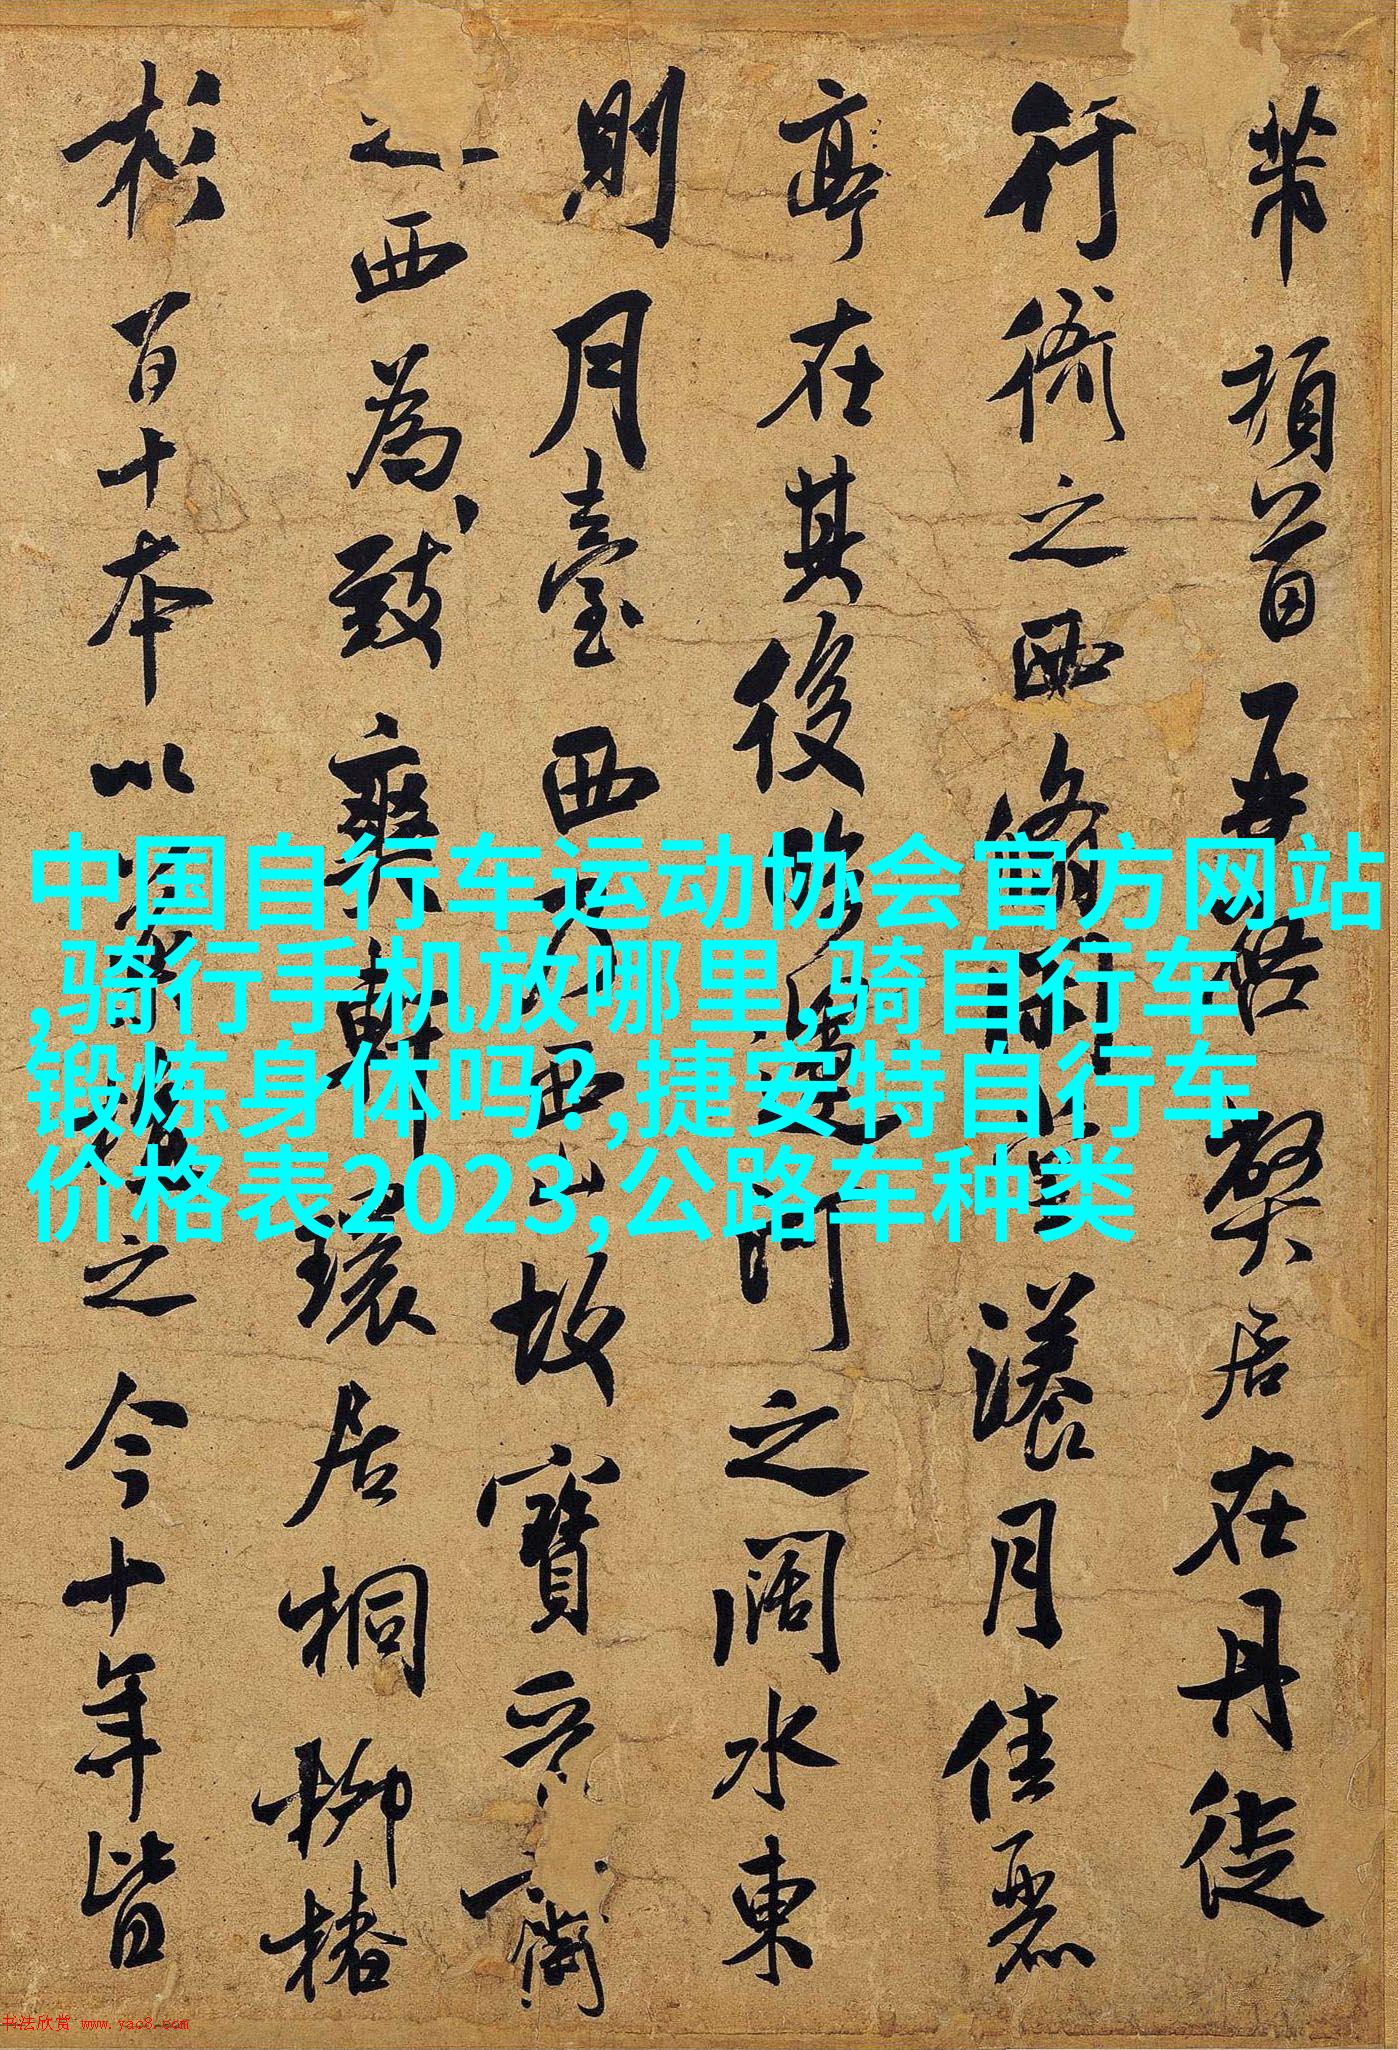 芾頓首再啓弊居在丹徒
行衙之西脩閒堂漾月佳麗
亭在其後臨運河之闊水東
則月臺西乃西山故寶晉齋
之西為致爽軒環居桐柳椿
杉百十本以之今十年皆
中国自行车运动协会官方网站
,骑行手机放哪里,骑自行车
锻炼身体吗?,捷安特自行车
价格表2023,公路车种类
书法欣赏 www.yac8.com